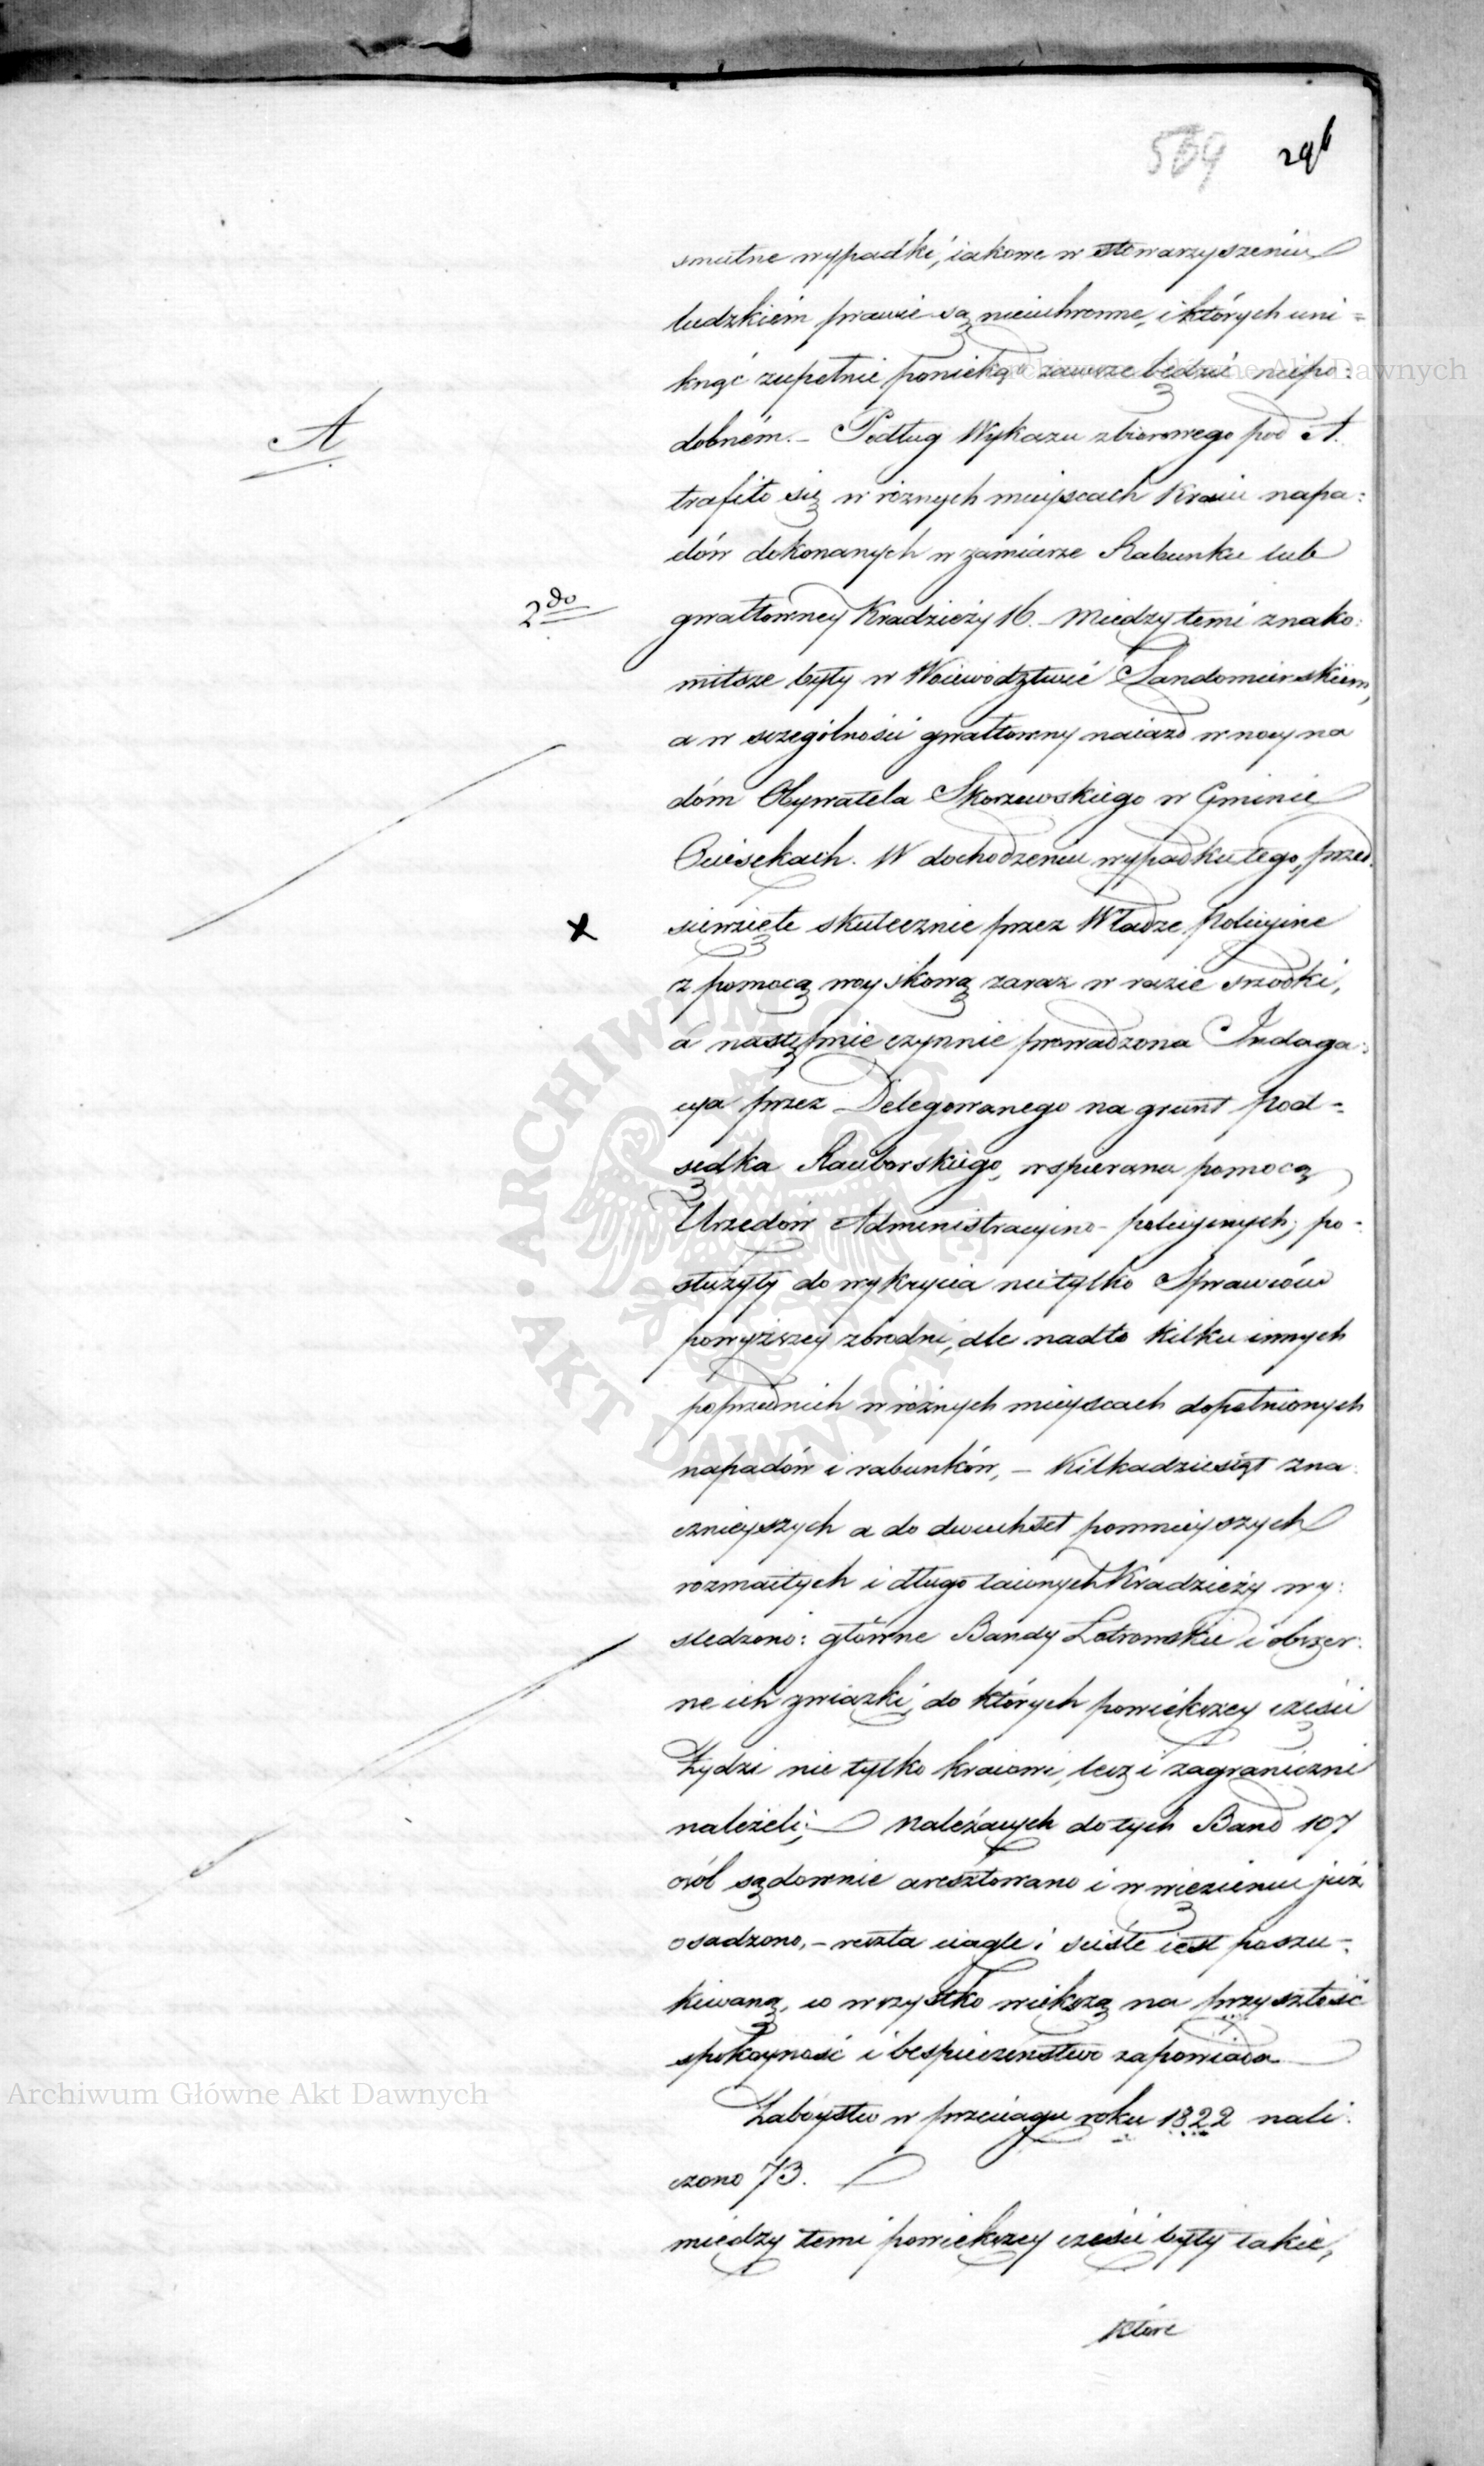 296
smutne wypadki, iakowe w stowarzyszeniu
ludzkiém prawie są nieuchronne, i których uni=
knąć zupełnie poniekąd zawsze będzie niepo:
dobném. – Podług Wykazu zbiorowego pod A.
A
trafiło się w różnych mieyscach Kraiu napa:
dów dokonanych w zamiarze Rabunku lub
2do
gwałtowney Kradzieży 16. – Między temi znako:
mitsze były w Woiewództwie Sandomierskiem,
a w szczególności gwałtowny naiazd w nocy na
dóm Obywatela Skorzewskiego w Gminie
W dochodzeniu wypadku tego, przed
X
sięwzięte skutecznie przez Władze Policyine
z pomocą woyskową zaraz w razie srzodki,
a następnie czynnie prowadzona Indaga:
cya przez Delegowanego na grunt Pod=
sędka wspierana pomocą
Urzędów Administracyino-policyinych, po-
służyły do wykrycia nietylko Sprawców
powyższey zbrodni, ale nadto kilku innych
poprzednich w różnych mieyscach dopełnionych
napadów i rabunków, – Kilkadziesiąt zna:
cznieyszych a do dwuchset pomnieyszych
rozmaitych i długo taionych Kradzieży wy:
sledzono: główne Bandy Łotrowskie i obszer:
ne ich związki, do których powiększey części
Żydzi nie tylko kraiowi, lecz i zagraniczni
należeli; Należących do tych Band 107
osób sądownie aresztowano i w więzieniu już
osadzono, – reszta ciągle i ściśle iest poszu-
kiwaną, co wszystko większą na przyszłość
spokoyność i bespieczeństwo zapowiada
Zabóystw w przeciągu roku 1822 nali:
czono 73.
między temi powiększey części były takie,
które
Archiwum Główne Akt Dawnych
Archiwum Główne Akt Dawnych
ARCHIWUM GŁÓWNE · AKT DAWNYCH ·